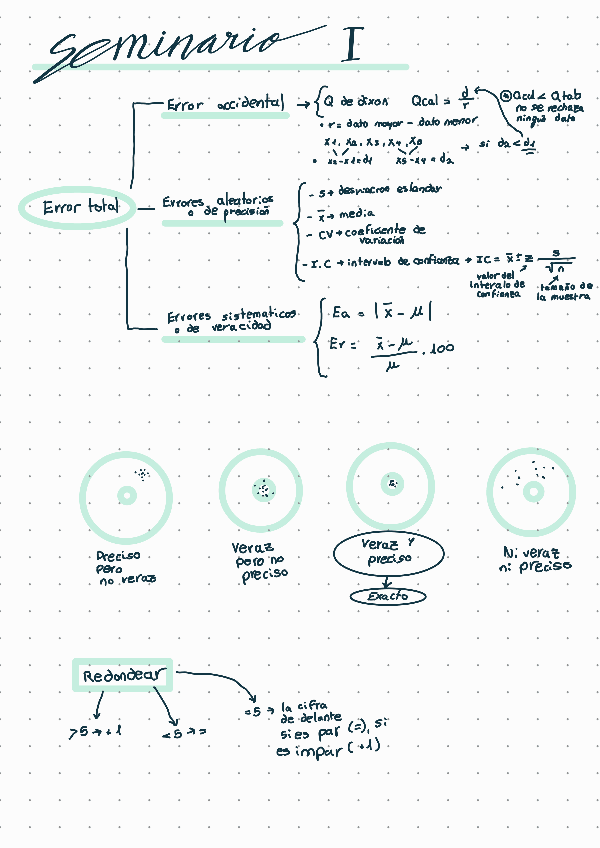 Seminario I
Error accidental → { Q de dixon Qcal = d/r
* Qcal < Qtab
no se rechaza
ningún dato
• r = dato mayor - dato menor
x1, x2, x3, x4, x5
• x2-x1=d1 x5-x4=d2
→ si d2 < d1
Error total
Errores aleatorios
o de precisión
- s → desviación estandar
- x̄ → media
- CV → coeficiente de
variación
- I.C → intervalo de confianza → IC = x̄ ± z s/√n
valor del
intervalo de
confianza
tamaño de
la muestra
Errores sistematicos
o de veracidad
Ea = | x̄ - μ |
Er = x̄ - μ / μ . 100
Preciso
pero
no veraz
Veraz
pero no
preciso
Veraz y
preciso
Exacto
Ni veraz
ni preciso
Redondear
>5 → +1
<5 → =
=5 → la cifra
de delante
si es par (=), si
es impar (+1)